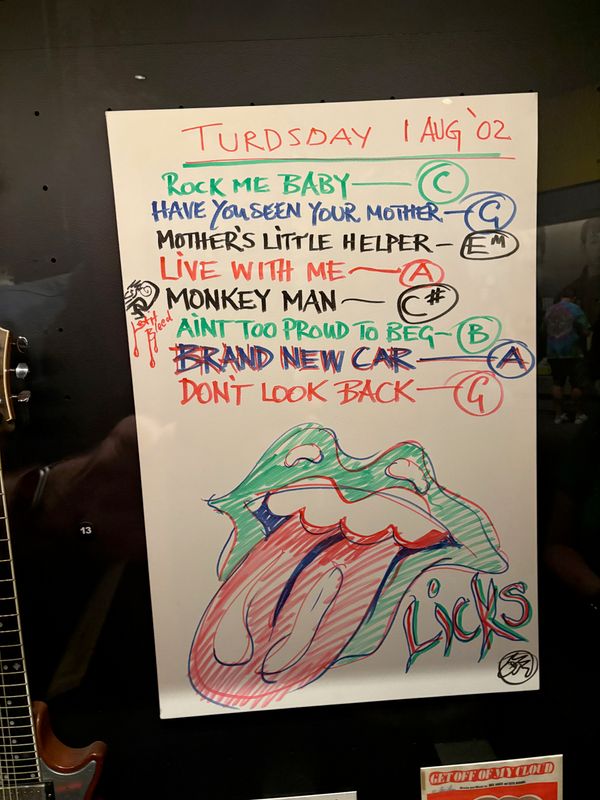 TURDSDAY 1 AUG '02
ROCK ME BABY — C
HAVE YOU SEEN YOUR MOTHER — G
MOTHER'S LITTLE HELPER — EM
LIVE WITH ME — A
MONKEY MAN — C#
Let it Bleed
AINT TOO PROUD TO BEG — B
BRAND NEW CAR — A
DON'T LOOK BACK — G
LICKS
13
GET OFF OF MY CLOUD